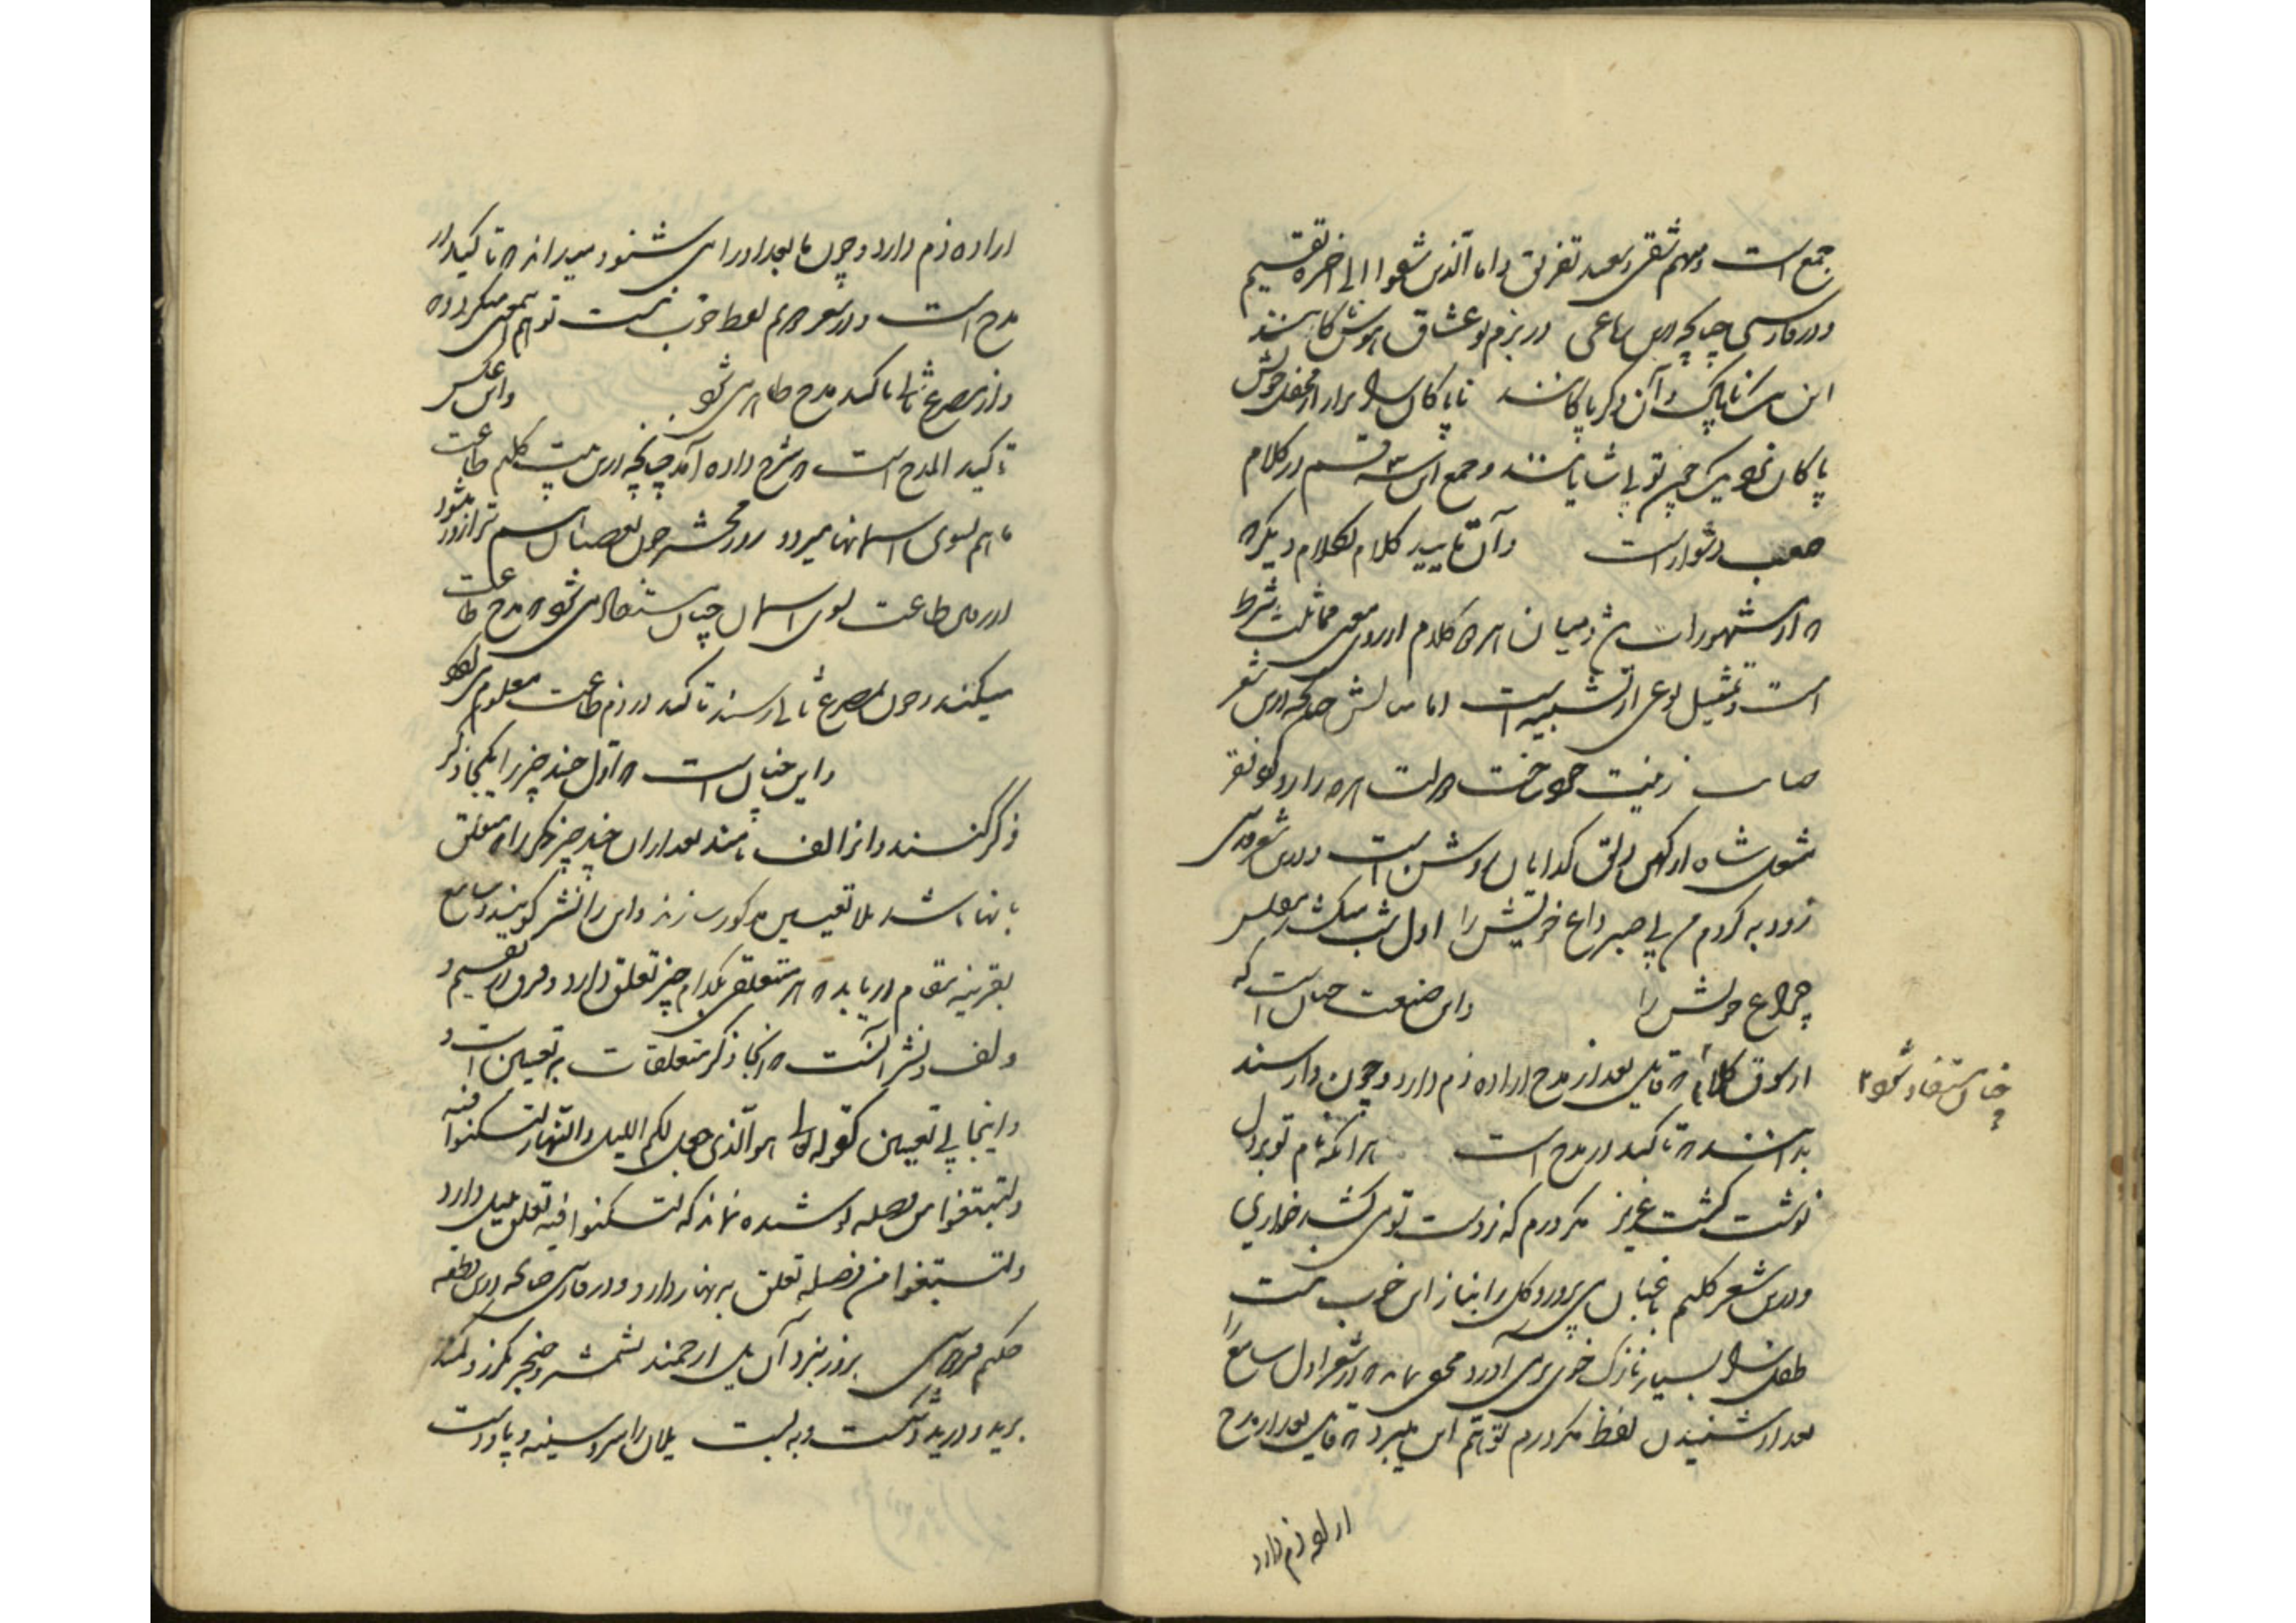 جمع است و منهم شقی و سعید تفریق و اما الذین شقوا الی اخره تقسیم
و در فارسی چنانچه این رباعی در بزم تو عشاق هوسناکانند
این ناپاک و آن دگر پاکانند ناپاکان را برار از محفل خویش
پاکان و جمع این سه قسم در کلام
صعب و دشوار است و آن تایید کلام بکلام دیگر که
که از مشهورات و میان هر دو کلام از روی معنی مماثلت شرط
است و تمثیل نوعی از تشبیه است اما مثالش چنانچه درین شعر
صائب زینت
شمع شاه از کهن دلق گدایان روشن است و درین شعر
زود به کردم من بی صبر داغ خویش را اول شب میکشد مفلس
چراغ خویش را و این صنعت چنان است که
از سوق کلام که قایل بعد از مدح اراده ذم دارد و چون وارسند
چنان مستفاد شود
بدانند که تاکید در مدح است هر آنکه نام تو بر دل
نوشت گشت عزیز مگر درم که ز دست تو می کشد خواری
و درین شعر کلیم باغبان می پرورد گل را بناز این خوب نیست
طفل را بسیار نازک خوی بر می آورد مخفی نماند که در شعر اول سامع را
بعد از شنیدن لفظ مگر درم توهم این میبرد که قایل بعد از مدح
اراده ذم دارد
اراده ذم دارد و چون ما بعد او را می شنود میداند که تاکید در
مدح است و در شعر دوم لفظ خوب نیست توهم این معنی میکردد
و از مصرع ثانی تاکید مدح ظاهر می شود و این عکس
تاکید المدح است که شرح داده آمد چنانچه درین بیت کلیم طاعت
ما هم بسوی آسمانها میرود روز محشر چون بعصیان هم ترازو میشود
از رفتن طاعت بسوی آسمان چنان مستفاد می شود که مدح طاعت
میکند و چون بمصرع ثانی رسند تاکید در ذم طاعت معلوم می شود
و این چنان است که اول چند چیز را یکجا ذکر
ذکر کنند و انرا لف نامند بعد ازان چند چیز دیگر را که متعلق
بانها باشد بلا تعیین مذکور سازند و این را نشر گویند و سامع
بقرینه مقام دریابد که هر متعلق بکدام چیز تعلق دارد و فرق در تقسیم و
و لف و نشر آنست که آنجا ذکر متعلقات به تعیین است و
و اینجا بی تعیین کقوله تعالی هو الذی جعل لکم اللیل و النهار لتسکنوا فیه
و لتبتغوا من فضله پوشیده نماند که لتسکنوا فیه تعلق بلیل دارد
و لتبتغوا من فضله تعلق به نهار دارد و در فارسی چنانچه درین قطعه
حکیم فردوسی بروز نبرد آن یل ارجمند بشمشیر و خنجر بگرز و کمند
برید و درید و شکست و ببست یلان را سر و سینه و پا و دست